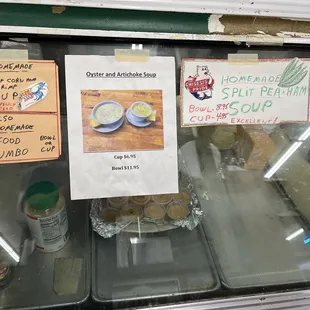 HOMEMADE
CORN
UP
LSO
HOMEMADE
FOOD
UMBO
BOWL
OR
CUP
Oyster and Artichoke Soup
Cup $6.95
Bowl $11.95
HOMEMADE
SPLIT PEA & HAM
SOUP
BOWL-
CUP-
EXCELLENT!